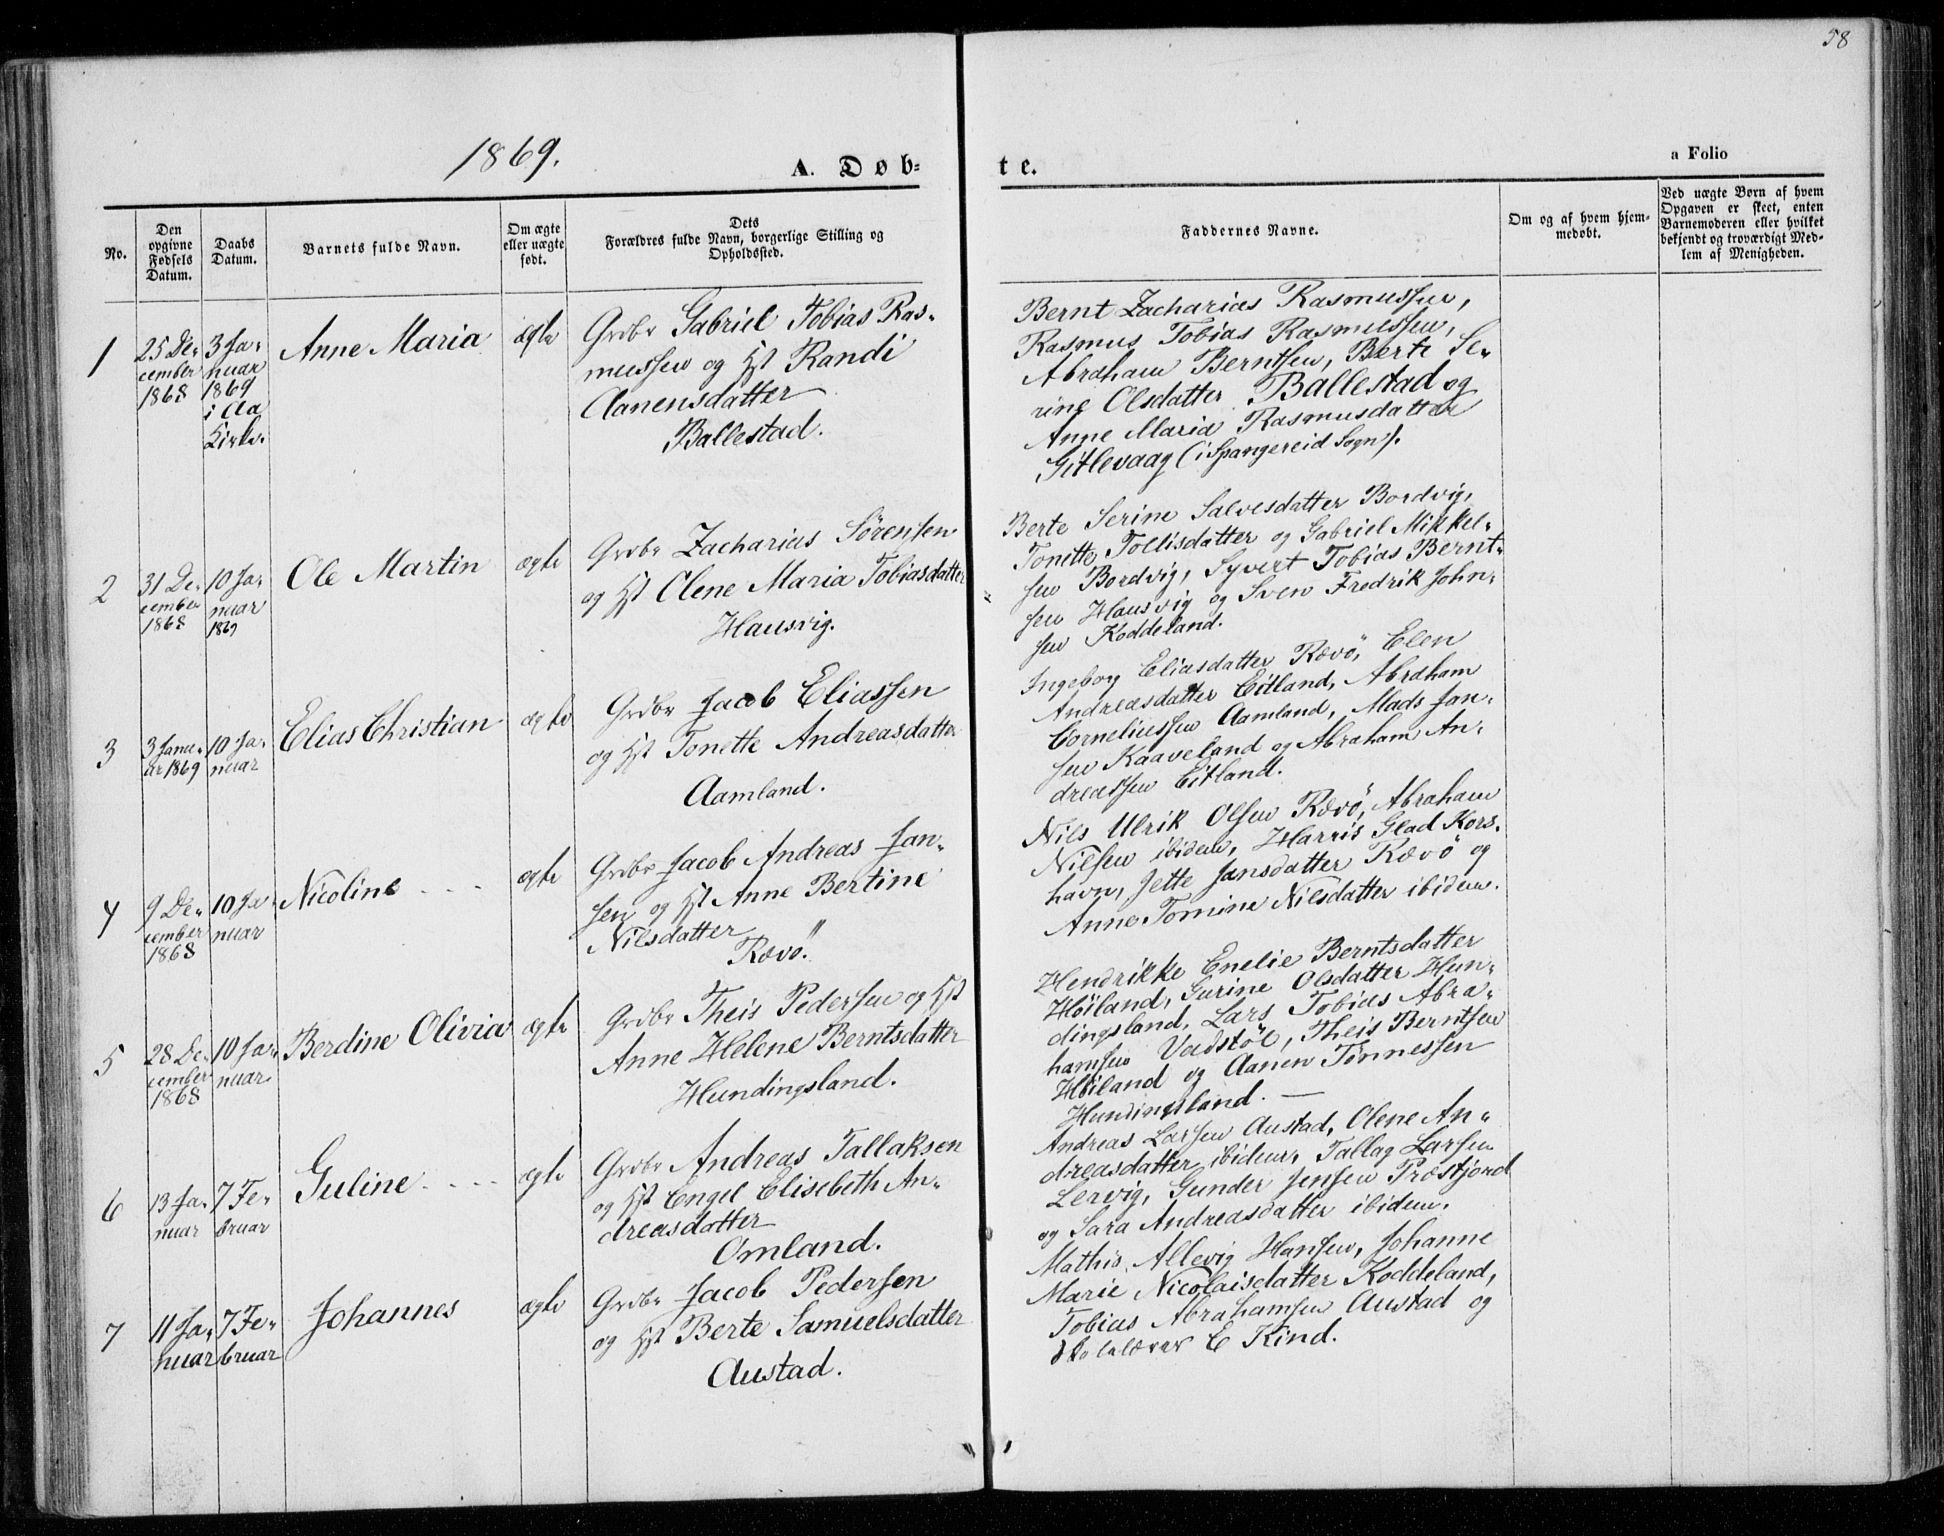 58
1869.
A. Døb-
te.
a Folio
No.
Den
opgivne
Fødsels
Datum.
Daabs
Datum.
Barnets fulde Navn.
Om ægte
eller uægte
født.
Dets
Forældres fulde Navn, borgerlige Stilling og
Opholdssted.
Faddernes Navne.
Om og af hvem hjem-
medøbt.
Ved uægte Børn af hvem
Opgaven er skeet, enten
Barnemoderen eller hvilket
bekjendt og troværdigt Med-
lem af Menigheden.
1
25 De-
cember
1868
3 Ja-
nuar
1869
i Aa
Kirke.
Anne Maria
ægte
Grdbr Gabriel Tobias Ras-
mussen og Hst Randi
Aanensdatter
Ballestad.
Bernt Zacharias Rasmussen,
Rasmus Tobias Rasmussen,
Abraham Berntsen, Berte Se-
rine Olsdatter Ballestad og
Anne Maria Rasmusdatter
Gitlevaag (i Spangereid Sogn).
2
31 De-
cember
1868
10 Ja-
nuar
1869
Ole Martin
ægte
Grdbr Zacharias Sørensen
og Hst Olene Maria Tobiasdatter
Hausvig.
Berte Serine Salvesdatter Bordvig,
Tonette Tollisdatter og Gabriel Mikkel-
sen Bordvig, Syvert Tobias Bernt-
sen Hausvig og Sven Fredrik John-
sen Koddeland.
3
3 Janu-
ar 1869
10 Ja-
nuar
Elias Christian
ægte
Grdbr Jacob Eliassen
og Hst Tonette Andreasdatter
Aamland.
Ingeborg Eliasdatter Rævø, Elen
Andreasdatter Eitland, Abraham
Corneliussen Aamland, Mads Jan-
sen Kaaveland og Abraham An-
dreassen Eitland.
4
9 De-
cember
1868
10 Ja-
nuar
Nicoline - - -
ægte
Grdbr Jacob Andreas Jan-
sen og Hst Anne Bertine
Nilsdatter
Rævø.
Nils Ulrik Olsen Rævø, Abraham
Nilsen ibidem, Harris Glad Kors-
havn, Jette Jansdatter Rævø og
Anne Tomine Nilsdatter ibidem.
5
28 De-
cember
1868
10 Ja-
nuar
Berdine Olivia
ægte
Grdbr Theis Pedersen og Hst
Anne Helene Berntsdatter
Hundingsland.
Hendrikke Enelie Berntsdatter
Høiland, Gurine Olsdatter Hun-
dingsland, Lars Tobias Abra-
hamsen Vadstøl, Theis Berntsen
Høiland og Aanen Tønnessen
Hundingsland. —
6
13 Ja-
nuar
7 Fe-
bruar
Guline - - - -
ægte
Grdbr Andreas Tallaksen
og Hst Engel Elisebeth An-
dreasdatter
Omland.
Andreas Larsen Austad, Olene An-
dreasdatter ibidem, Tallag Larsen
Lervig, Gunder Jensen Præstjord
og Sara Andreasdatter ibidem.
7
11 Ja-
nuar
7 Fe-
bruar
Johannes
ægte
Grdbr Jacob Pedersen
og Hst Berte Samuelsdatter
Austad.
Mathis Allevig Hansen, Johanne
Marie Nicolaisdatter Koddeland,
Tobias Abrahamsen Austad og
Skolelærer E Kind.